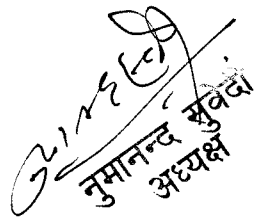 नुमानन्द सुवेदी
अध्यक्ष